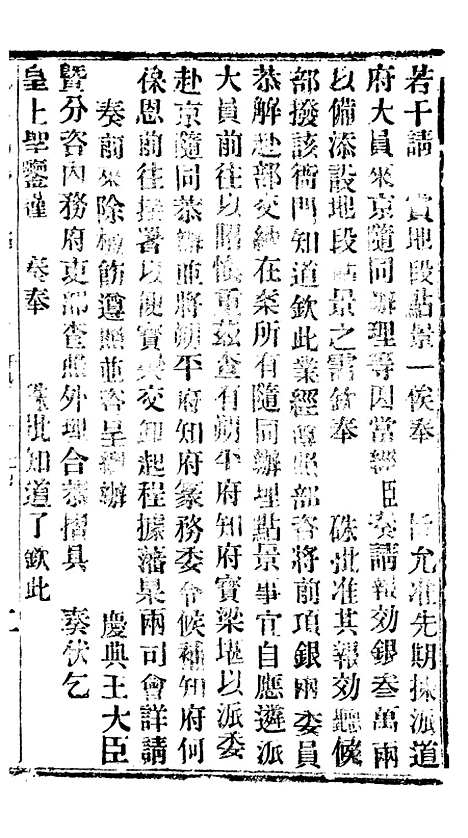 若干請　賞地段點景一俟奉　　旨允准先期揀派道
府大員來京隨同辦理等因當經臣奏請報効銀叁萬兩
以備添設地段點景之需欽奉　　硃批准其報効聽候
部撥該衙門知道欽此業經遵照部咨將前項銀兩委員
恭解赴部交納在案所有隨同辦理點景事宜自應遴派
大員前往以昭慎重茲查有朔平府知府寶梁堪以派委
赴京隨同恭辦並將朔平府知府篆務委令候補知府何
偀恩前往接署以便寶梁交卸起程據藩臬兩司會詳請
　奏前來除檄飭遵照並咨呈總辦　　慶典王大臣
暨分咨內務府吏部查照外理合恭摺具　奏伏乞
皇上聖鑒謹　奏奉　　硃批知道了欽此